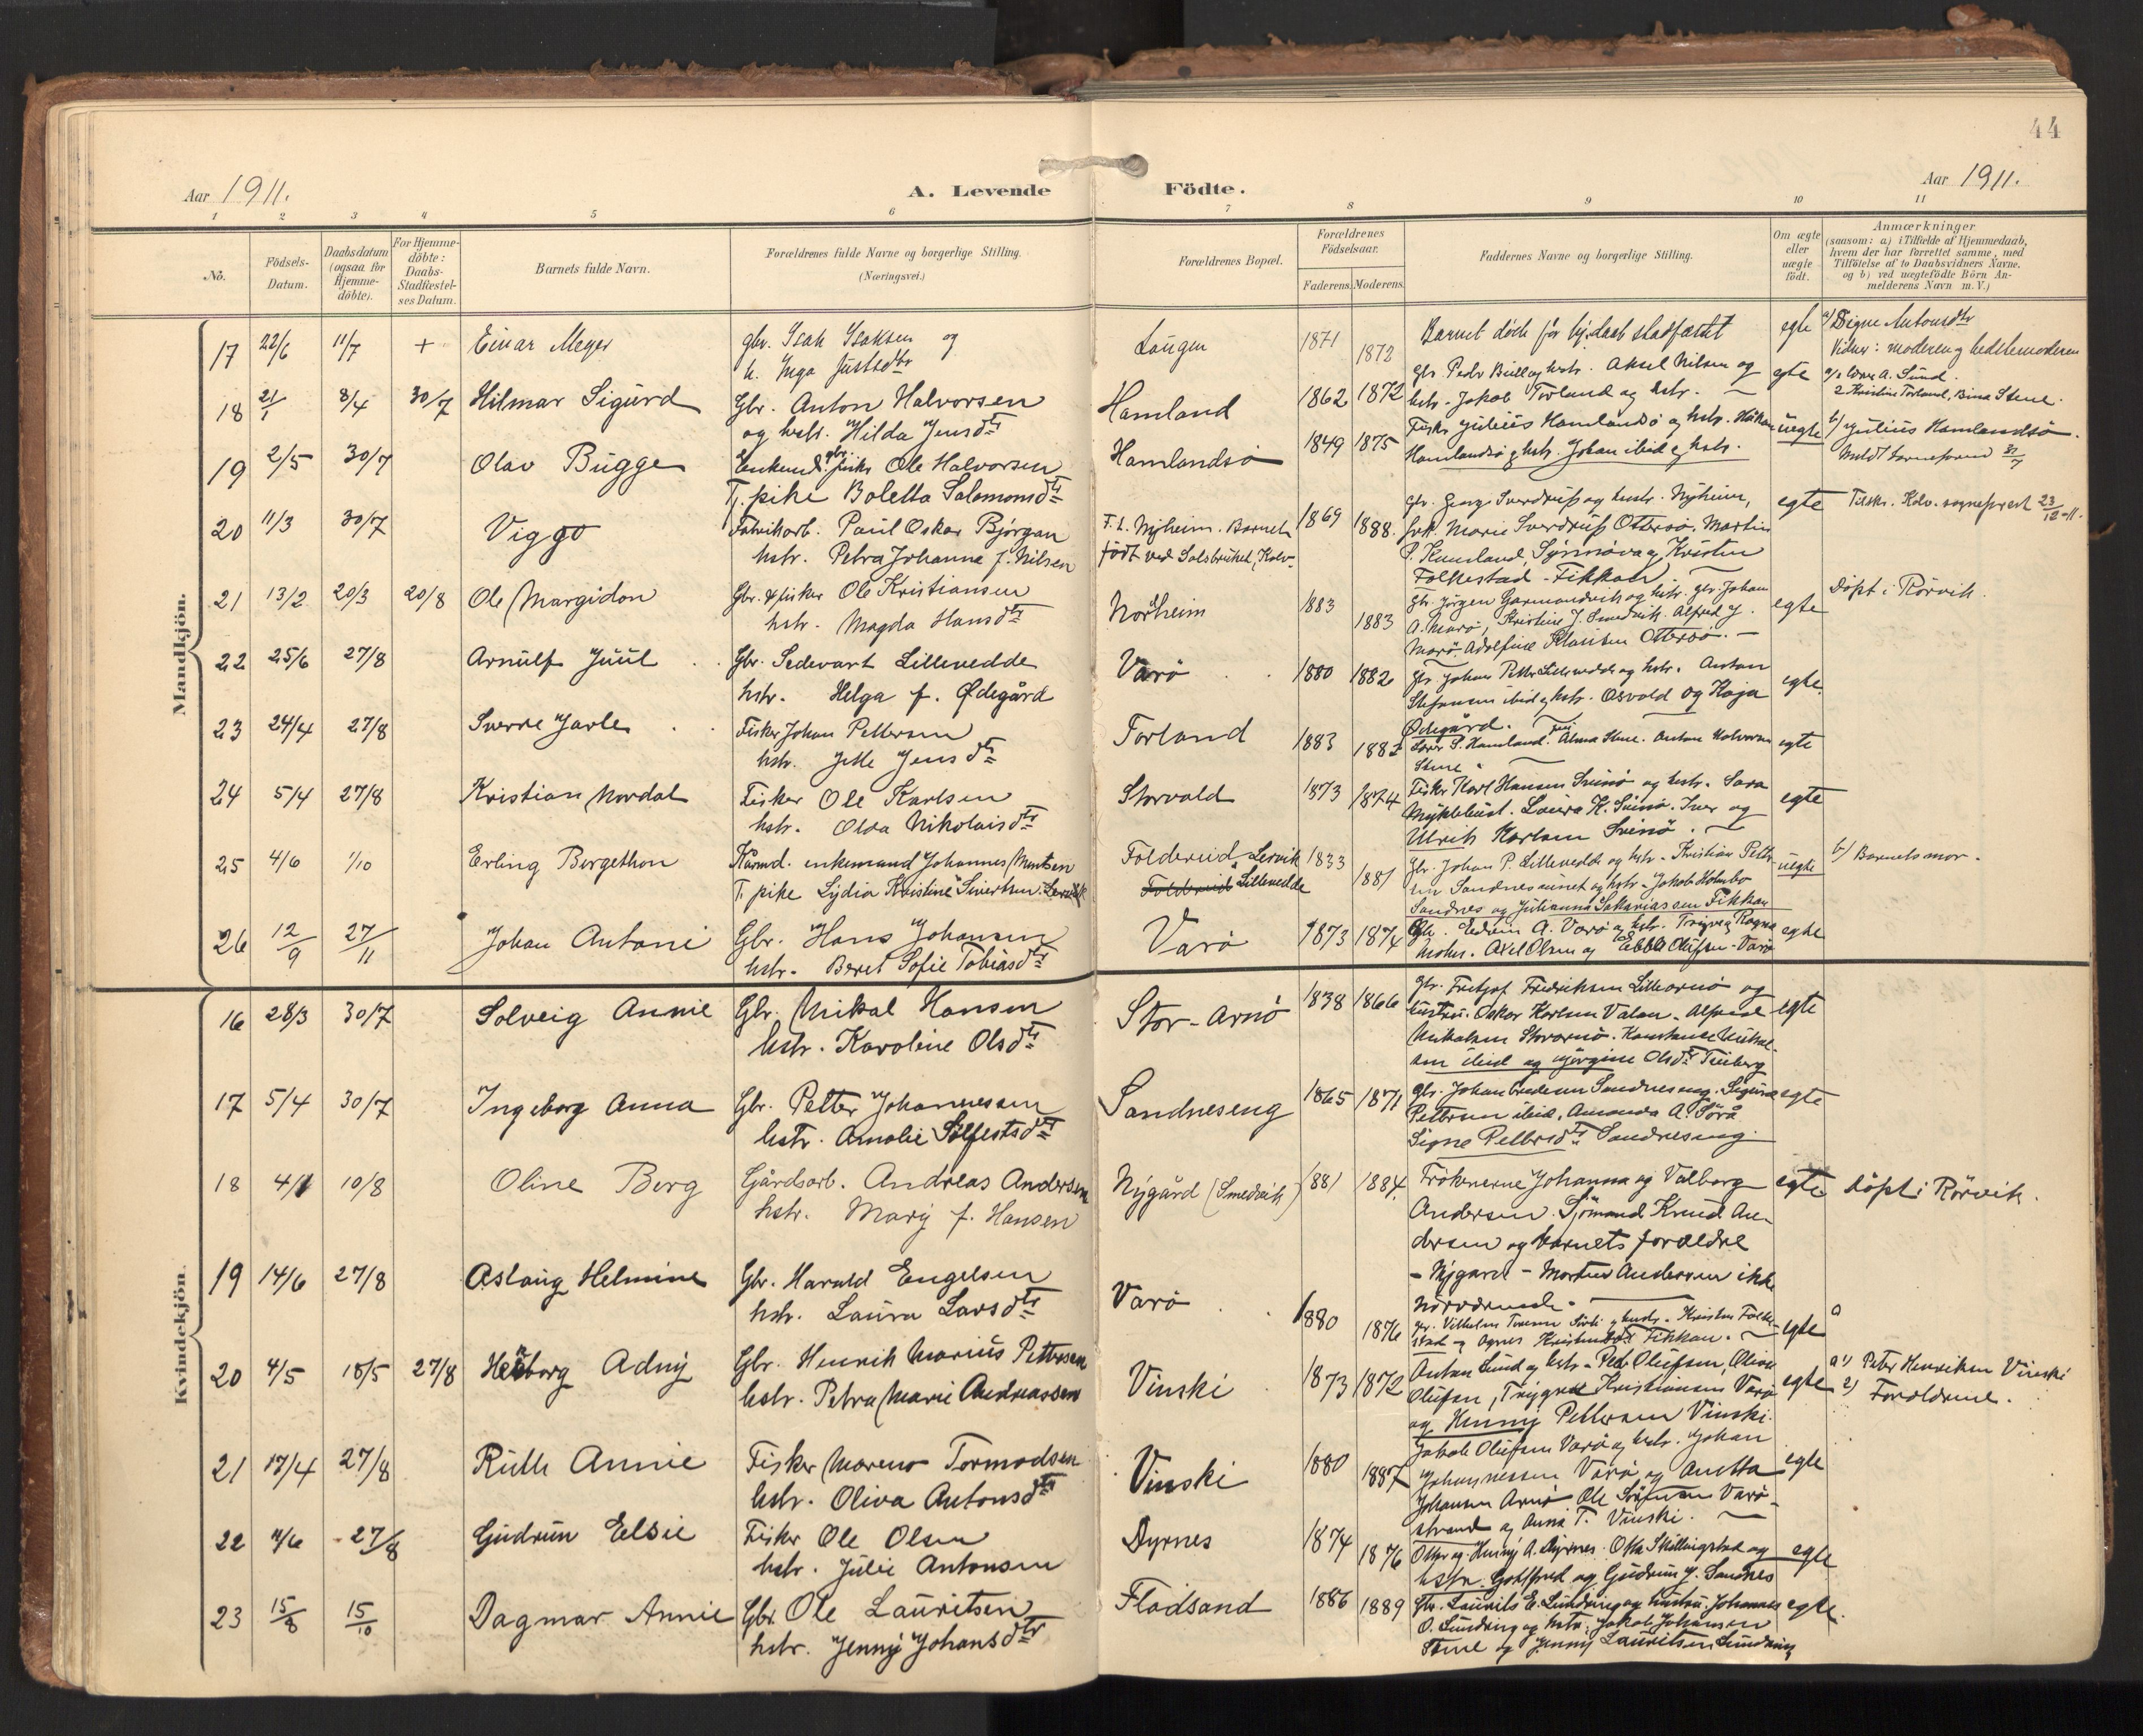 44
Aar 1911.
A. Levende Födte.
Aar 1911.
1 2 3 4 5 6 7 8 9 10 11
No.
Födsels-Datum.
Daabsdatum (ogsaa for Hjemme-döbte).
For Hjemme-döbte: Daabs-Stadfæstel-ses Datum.
Barnets fulde Navn.
Forældrenes fulde Navne og borgerlige Stilling.
(Næringsvei.)
Forældrenes Bopæl.
Forældrenes Födselsaar.
Faderens. Moderens.
Faddernes Navne og borgerlige Stilling.
Om ægte eller uægte födt.
Anmærkninger
(saasom: a) i Tilfælde af Hjemmedaab,
hvem der har forrettet samme, med
Tilföielse af to Daabsvidners Navne,
og b) ved uægtefödte Börn An-
melderens Navn m. V.)
Mandkjön.
17 22/6 11/7 + Einar Meyer
gbr. Isak Isaksen og
h. Inga Justsdtr
Laugen 1871 1872
Barnet døde før hj.daab stadfæstet
egte
a/ Signe Antonsdtr
Vidner: moderen og bedstemoderen
18 21/1 8/4 30/7 Hilmar Sigurd
Gbr. Anton Halvorsen
og hstr. Hilda Jensdtr
Hamland 1862 1872
Gbr. Peder Bull og hstr. Aksel Nilsen og
hstr. Jakob Torland og hstr.
egte
A. Sund.
2 Kristine Torland, Bina Stene.
19 2/5 30/7 Olav Bugge
Enkemd. gbr. fisker Ole Halvorsen
T. pike Boletta Salomonsdtr
Hamlandsø 1849 1875
Fisker Julius Hamlandsø og hstr. Håkon
Hamlandsø og hstr. Johan ibid og hstr.
uegte
b/ Julius Hamlandsø.
20 11/3 30/7 Viggo
Fabrikarb. Paul Oskar Bjørgan
hstr. Petra Johanna f. Nilsen
F. t. Nyheim. Barnet
født ved Salsbruket, Kolv.
1869 1888.
Gbr. Georg Sverdrup og hustr. Nyheim,
frk. Marie Sverdrup Ottersø, Martin
P. Kumland, Synnøva og Kristen
Folkestad - Fikkan
egte
Tilsk. Kolv. sogneprest 23/12-11.
21 13/2 20/3 20/8 Ole Margidon
Gbr. & fisker Ole Kristiansen
hstr. Magda Hansdtr
Norheim 1883 1883
Gbr. Jørgen Garmandsvik og hstr. Gbr. Johan
A. Marø, Kristine J. Smedvik. Alfred J.
Marø. Adolfine Klausen Ottersø.
egte
Døpt i Rørvik.
22 25/6 27/8 Arnulf Juul
Gbr. Sedevart Lillevedde
hstr. Helga f. Ødegård
Varø 1880 1882
Gbr. Johan Petter Lillevedde og hstr. Anton
Stefansen ibid og hstr. Osvald og Kaja
Ødegård.
egte.
23 24/4 27/8 Sverre Jarle
Fisker Johan Pettersen
hstr. Jette Jensdtr
Torland 1883 1882
Lærer P. Hamland. Frk. Alma Stene. Anton Halvorsen
Stene.
egte
24 5/4 27/8 Kristian Nordal
Fisker Ole Karlsen
hstr. Olda Nikolaisdtr
Storvald 1873 1874
Fisker Karl Hansen Svinø og hstr. Sara
Myklebust. Laura K. Svinø. Iver og
Ulrik Karlsen Svinø.
egte
25 4/6 1/10 Erling Bergethon
Kårmd. enkemand Johannes Mentsen
T. pike Lydia Kristine Sivertsen
Foldereid Lervik
Lillevedde
1833 1881
Gbr. Johan P. Lillevedde og hstr. Kristian Petter-
sen Sandnesvinet og hstr. Jakob Holmbo
Sandnes og Julianna Sakariassen Fikkan
uegte
b/ Barnets mor.
26 12/9 27/11 Johan Antoni
Gbr. Hans Johansen
hstr. Beret Sofie Tobiasdtr
Varø 1873 1874
Gbr. Edvin A. Varø og hstr. Trygve og Ragna
Mohus. Axel Olsen og Ebba Olufsen - Varø
egte
Kvindekjön.
16 28/3 30/7 Solveig Annie
Gbr. Mikal Hansen
hstr. Karoline Olsdtr
Stor-Arnø 1838 1866
Gbr. Fritjof Fredriksen Lillearnø og
hustru. Oskar Karlsen Valen. Alfred
Mikalsen Storarnø. Konstanse Mikal-
sen ibid og Jørgine Olsdtr Teiberg
egte
17 5/4 30/7 Ingeborg Anna
Gbr. Petter Johannessen
hstr. Amalie Sølfestsdtr
Sandneseng 1865 1871
Gbr. Johan Pedersen Sandneseng. Sigurd
Pettersen ibid, Amanda A. Sørå
Signe Pettersdtr Sandneseng
egte
18 4/1 10/8 Oline Berg
Gårdsarb. Andreas Andersen
hstr. Mary f. Hansen
Nygård (Smedvik) 1881 1884
Frøknerne Johanna og Valborg
Andersen. Sjømand Knud An-
dersen og barnets forældre
- Nygård - Morten Andersen ikke
nærværende.
egte
Døpt i Rørvik.
19 14/6 27/8 Aslaug Helmine
Gbr. Harald Engelsen
hstr. Laura Larsdtr
Varø 1880 1876
Gbr. Vilhelm og hustr. Kristen Folke-
stad og Agnes Kristensdtr Fikkan.
egte
20 4/5 18/5 27/8 Henborg Adny
Gbr. Henrik Marius Pettersen
hstr. Petra Marie Andreassen
Vinski 1873 1872
Anton Lund og hstr. Peder Olufsen, Oliva
Olufsen, Trygve Kristiansen Varø
og Henny Pettersen Vinski.
egte
a 1) Peter Henriksen Vinski
2) Forældrene.
21 17/4 27/8 Ruth Annie
Fisker Mareno Tormodsen
hstr. Oliva Antonsdtr
Vinski 1880 1887
Jakob Olufsen Varø og hstr. Johan
Johannessen Varø og Anetta
Johansen Arnø Ole Sørensen Varø-
strand og Anna T. Vinski.
egte
22 11/6 27/8 Gudrun Elsie
Fisker Ole Olsen
hstr. Julie Antonsen
Dyrnes 1874 1876
Otter og Henny A. Dyrnes. Otto Skillingstad og
hstr. Gottfred og Gudrun J. Sandnes
egte
23 15/8 15/10 Dagmar Annie
Gbr. Ole Lauritsen
hstr. Jenny Johansdtr
Flødsand 1886 1889
Gbr. Laurits E. Lundring og hustru. Johannes
O. Lundring og hstr. Jakob Johansen
Stene og Jenny Lauritsen Lundring
egte.